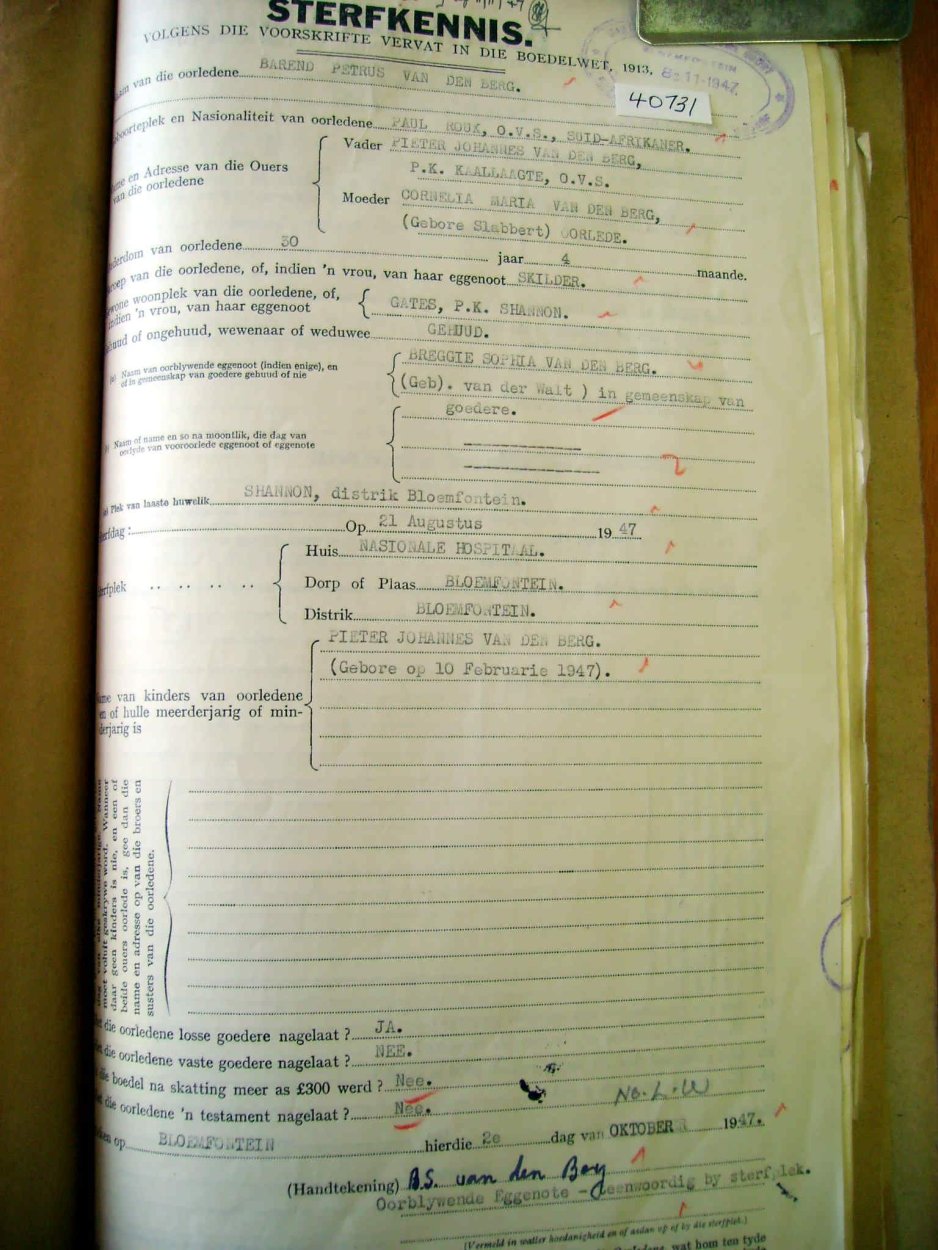 STERFKENNIS.
VOLGENS DIE VOORSKRIFTE VERVAT IN DIE BOEDELWET, 1913.
8-11-1947
40731
van die oorledene BAREND PETRUS VAN DEN BERG.
en Nasionaliteit van oorledene PAUL ROUX, O.V.S., SUID-AFRIKANER.
en Adresse van die Ouers
van die oorledene
Vader PIETER JOHANNES VAN DEN BERG,
P.K. KAALLAAGTE, O.V.S.
Moeder CORNELIA MARIA VAN DEN BERG,
(Gebore Slabbert) OORLEDE.
van oorledene 30 jaar 4 maande.
van die oorledene, of, indien 'n vrou, van haar eggenoot SKILDER.
woonplek van die oorledene, of,
indien 'n vrou, van haar eggenoot
GATES, P.K. SHANNON.
of ongehuud, wewenaar of weduwee GEHUUD.
(a) Naam van oorblywende eggenoot (indien enige), en
of in gemeenskap van goedere gehuud of nie
BREGGIE SOPHIA VAN DEN BERG.
(Geb). van der Walt ) in gemeenskap van
goedere.
Naam of name en so na moontlik, die dag van
oorlyde van vooroorlede eggenoot of eggenote
(c) Plek van laaste huwelik SHANNON, distrik Bloemfontein.
Op 21 Augustus 1947
Huis NASIONALE HOSPITAAL.
Dorp of Plaas BLOEMFONTEIN.
Distrik BLOEMFONTEIN.
PIETER JOHANNES VAN DEN BERG.
(Gebore op 10 Februarie 1947).
van kinders van oorledene
en of hulle meerderjarig of min-
derjarig is
moet voluit geskrywe word. Wanneer
daar geen kinders is nie, en een of
beide ouers oorlede is, gee dan die
name en adresse op van die broers en
susters van die oorledene.
die oorledene losse goedere nagelaat ? JA.
die oorledene vaste goedere nagelaat ? NEE.
die boedel na skatting meer as £300 werd ? Nee.
die oorledene 'n testament nagelaat ? Nee.
No. L. W
op BLOEMFONTEIN hierdie 2e dag van OKTOBER 1947.
(Handtekening) B.S. van den Berg
Oorblywende Eggenote - Teenwoordig by sterfplek.
(Vermeld in watter hoedanigheid en of asdan op of by die sterfplek.)
wat hom ten tyde